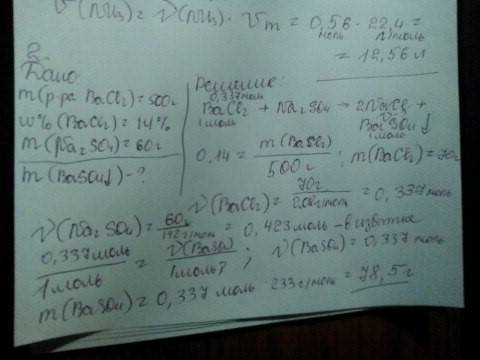 ν(NH₃) = ν(NH₃) · Vm = 0,56 моль · 22,4 л/моль =
= 12,56 л
2
Дано:
m(р-ра BaCl₂) = 500г
w%(BaCl₂) = 14%
m(Na₂SO₄) = 60г
m(BaSO₄↓) - ?
Решение:
0,337моль
BaCl₂ + Na₂SO₄ → 2NaCl +
1моль
BaSO₄↓
1моль
0,14 = m(BaCl₂) / 500г ; m(BaCl₂) = 70г
ν(BaCl₂) = 70г / 208г/моль = 0,337моль
ν(Na₂SO₄) = 60г / 142г/моль = 0,423моль – в избытке
0,337моль / 1моль = ν(BaSO₄) / 1моль ; ν(BaSO₄) = 0,337моль
m(BaSO₄) = 0,337 моль · 233г/моль = 78,5г